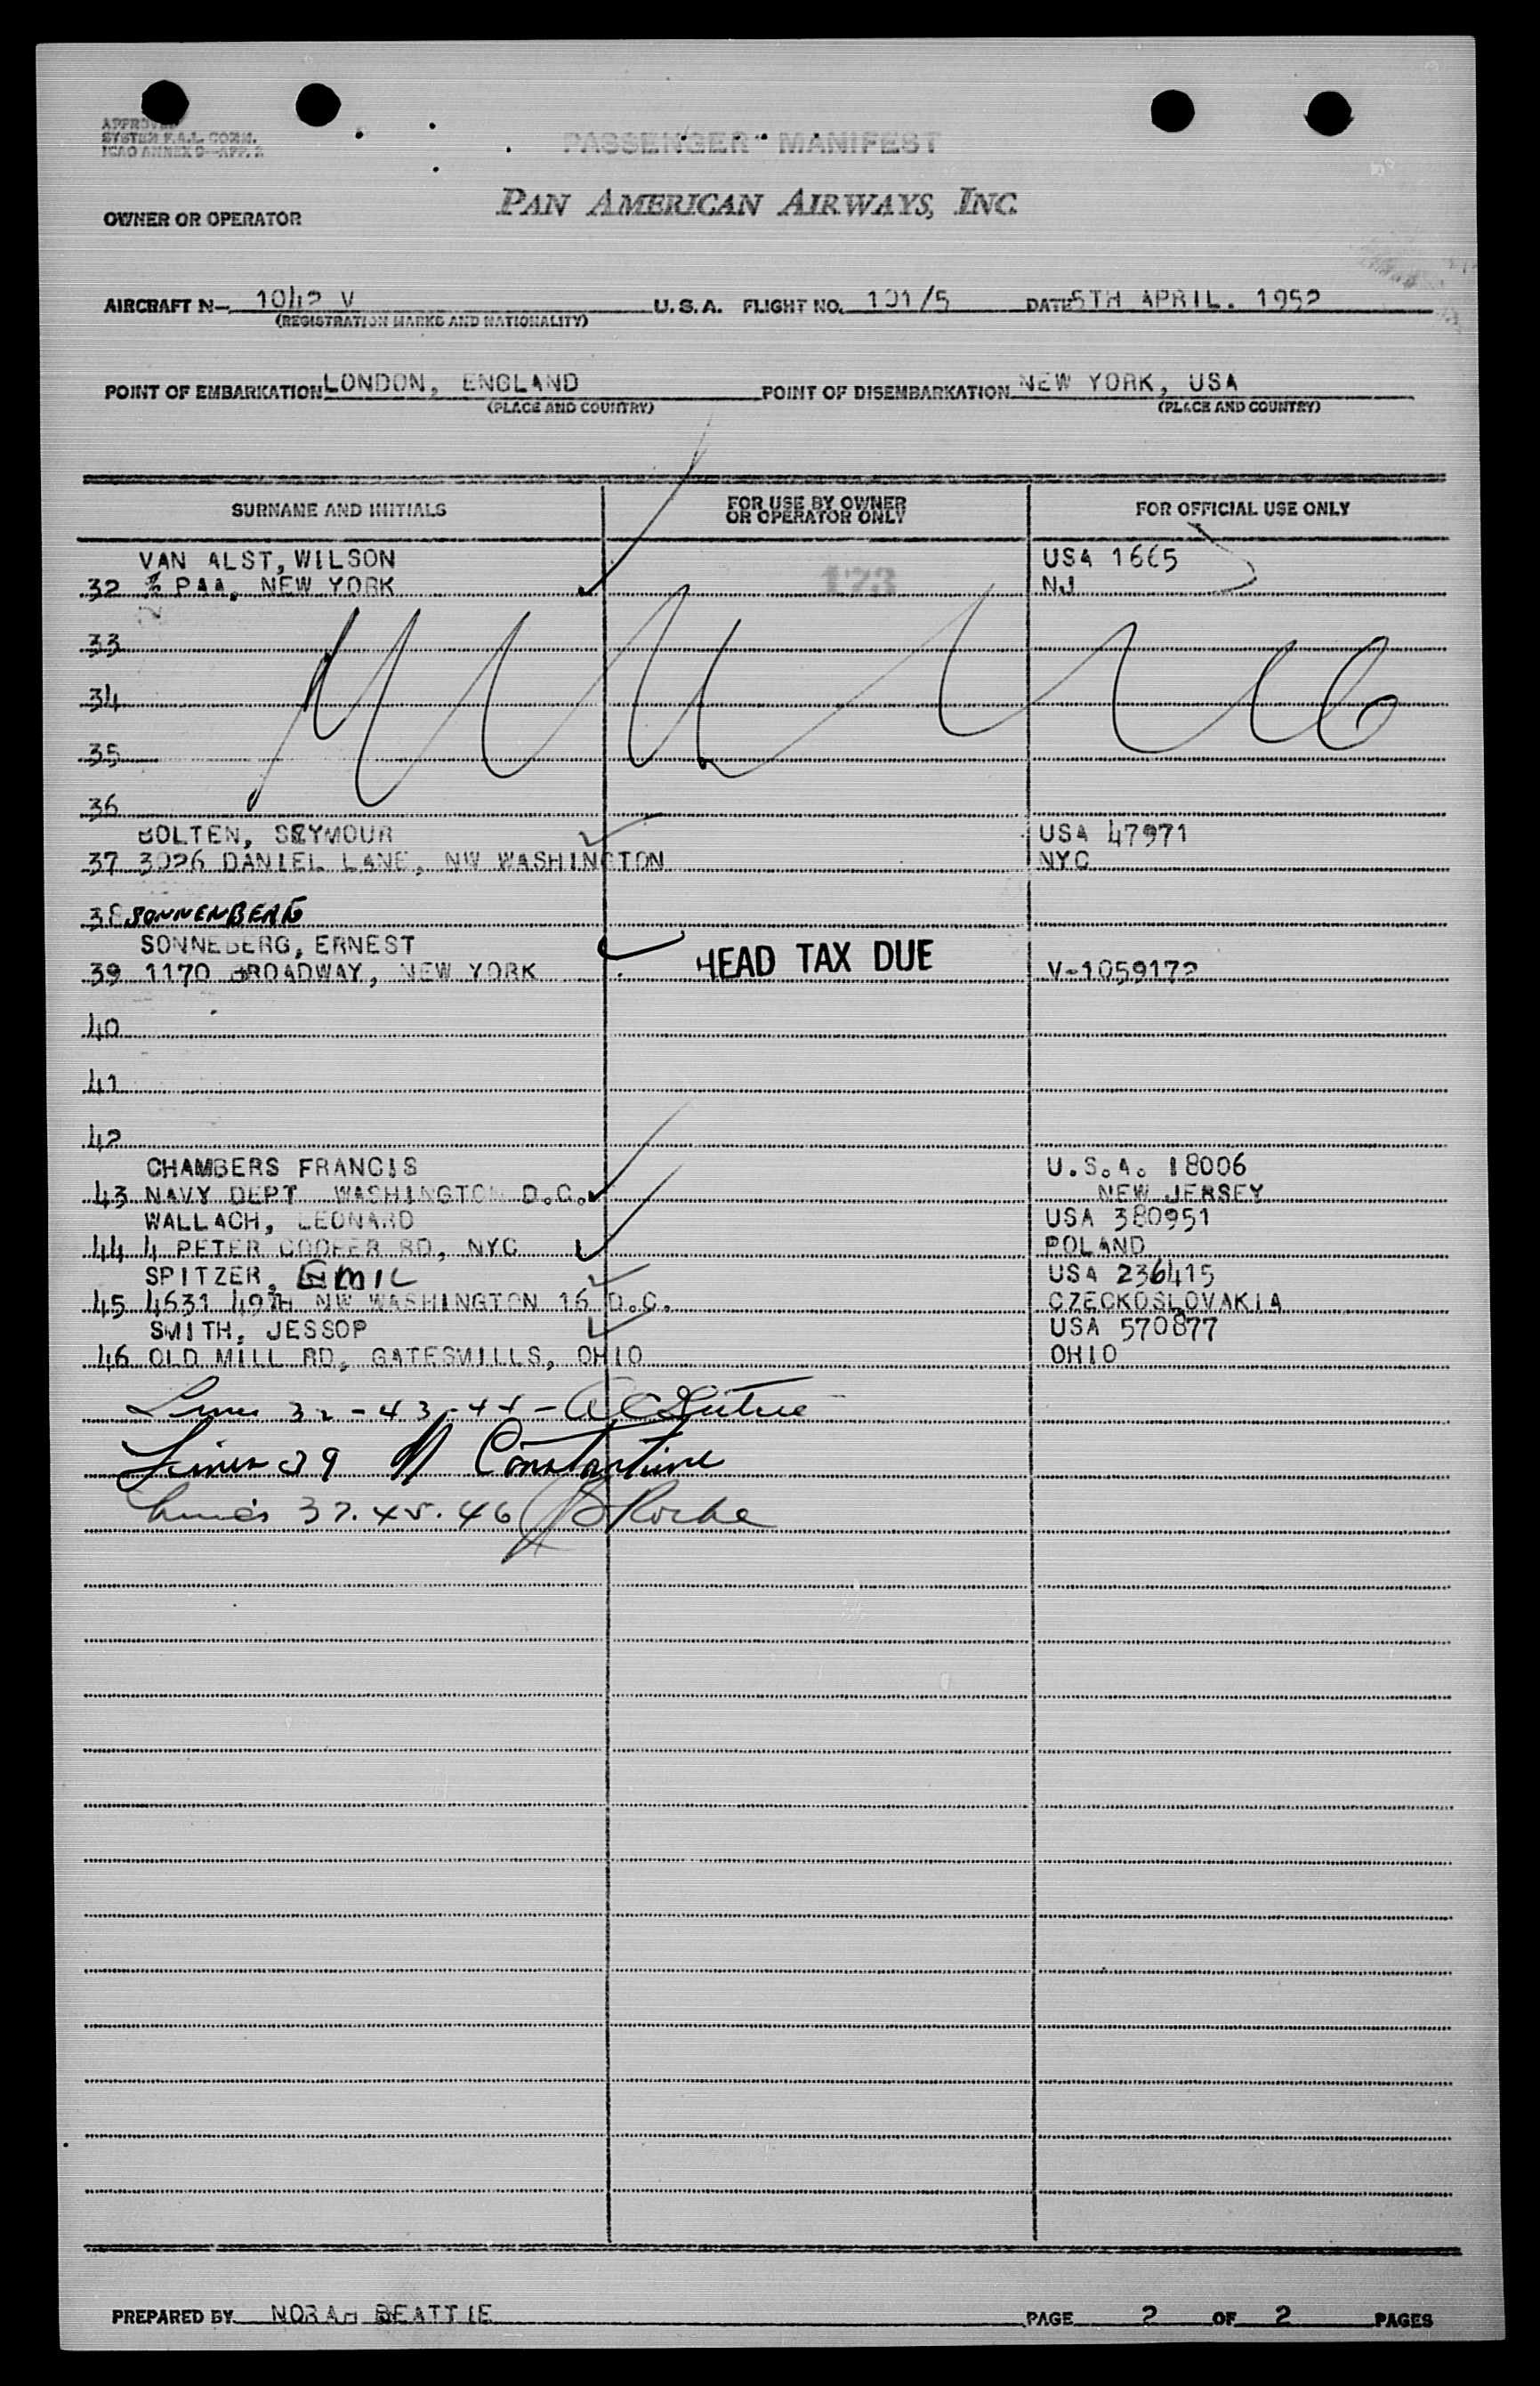 APPROVED
SYSTEM F.A.L. COMM.
ICAO ANNEX 9-APP. 2
PASSENGER MANIFEST
PAN AMERICAN AIRWAYS, INC.
OWNER OR OPERATOR
AIRCRAFT N- 1042 V U.S.A. FLIGHT NO. 101/5 DATE 5TH APRIL. 1952
(REGISTRATION MARKS AND NATIONALITY)
POINT OF EMBARKATION LONDON, ENGLAND POINT OF DISEMBARKATION NEW YORK, USA
(PLACE AND COUNTRY) (PLACE AND COUNTRY)
SURNAME AND INITIALS FOR USE BY OWNER OR OPERATOR ONLY FOR OFFICIAL USE ONLY
VAN ALST, WILSON USA 1665
32 % PAA, NEW YORK 173 NJ
33
34
35
36
BOLTEN, SEYMOUR USA 47971
37 3026 DANIEL LANE, NW WASHINGTON NYC
38 SONNENBERG
SONNEBERG, ERNEST HEAD TAX DUE
39 1170 BROADWAY, NEW YORK V-1059172
40
41
42
CHAMBERS FRANCIS U.S.A. 18006
43 NAVY DEPT WASHINGTON D.C. NEW JERSEY
WALLACH, LEONARD USA 380951
44 4 PETER COOPER RD, NYC POLAND
SPITZER, EMIL USA 236415
45 4631 49TH NW WASHINGTON 16 D.C. CZECKOSLOVAKIA
SMITH, JESSOP USA 570877
46 OLD MILL RD, GATESMILLS, OHIO OHIO
Lines 32-43-44-
Lines 39 Constantine
Lines 37.45.46 Roche
PREPARED BY NORAH BEATTIE PAGE 2 OF 2 PAGES